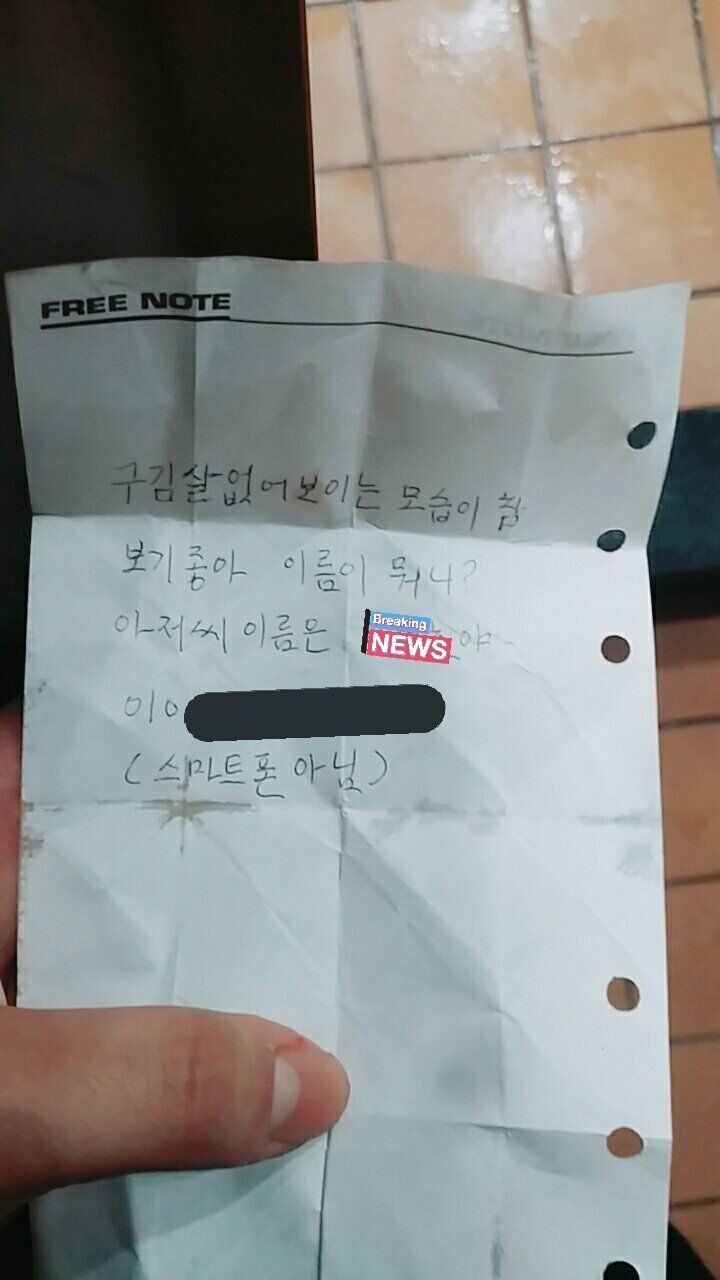 FREE NOTE
구김살없어보이는 모습이 참
보기좋아 이름이 뭐니?
아저씨 이름은
Breaking
NEWS
야
010
(스마트폰 아님)